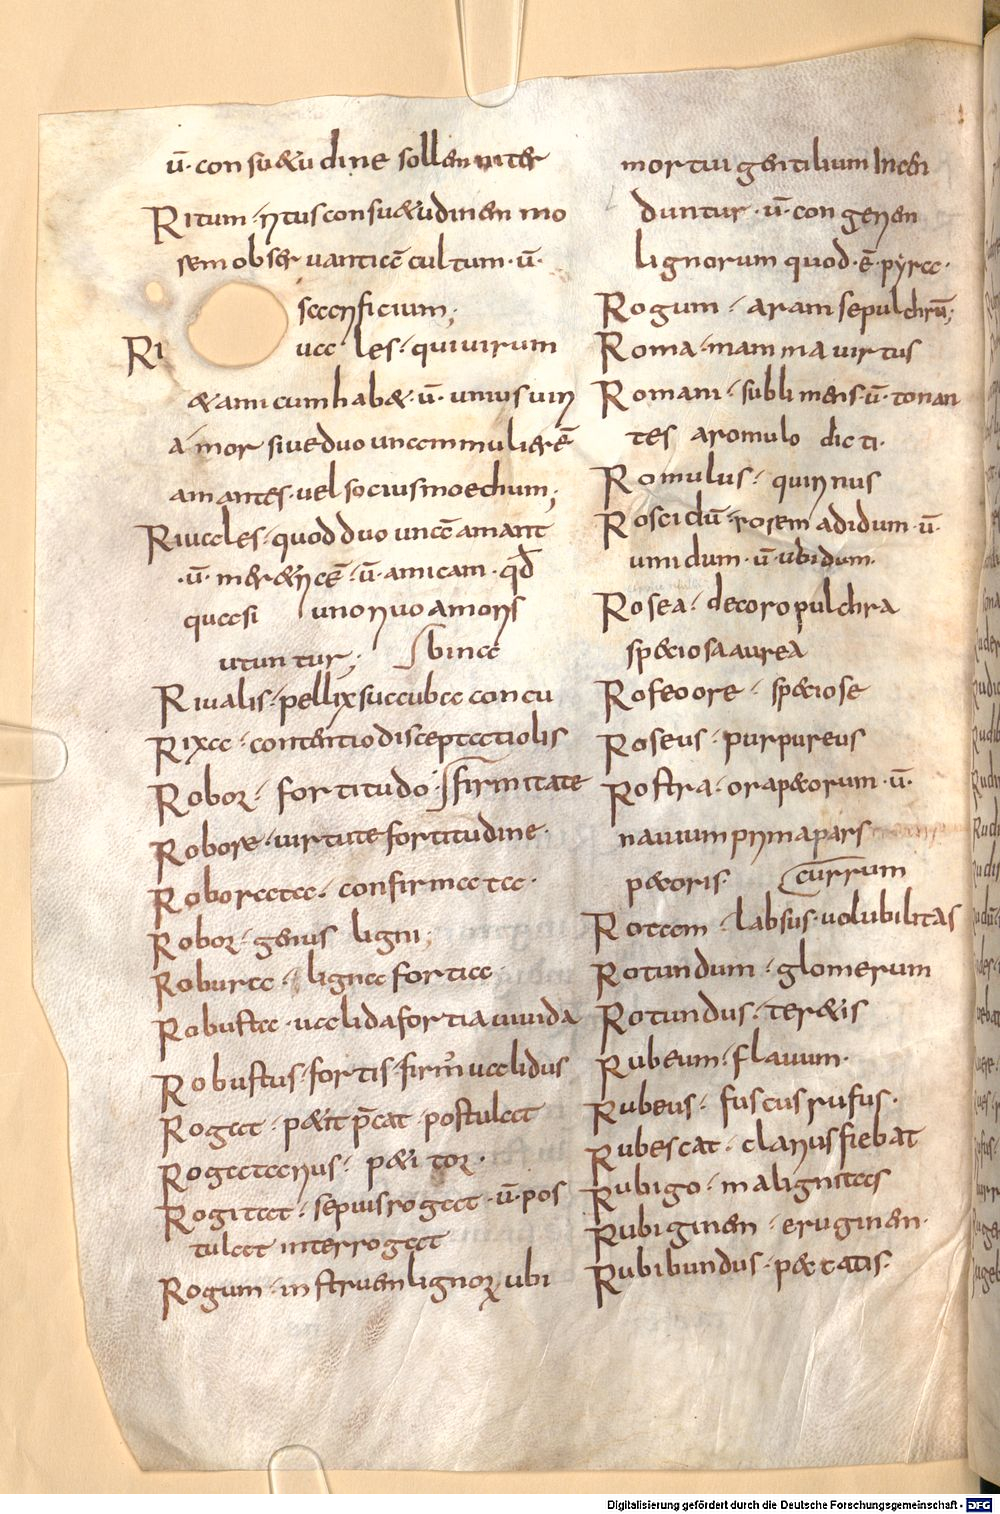 ū · consuetudine sollemniter
Ritum · ritus consuetudinem mo
rem obseruanticē cultum · ū ·
sacrificium;
Ri uales · qui uirum
& amicum hab& · ū · unius uiri
amor siue duo unam mulierē
amantes · uel socius moechum;
Riuales · quod duo unā amant
· ū · mer&ricē · ū · amicam · qd̄
quasi uno riuo amoris
utuntur; binae
Riualis · pellix succuba concu
Rixa · contentio disceptatio lis
Robor · fortitudo · firmitate
Robore · uirtute fortitudine ·
Roborata · confirmata ·
Robor · genus ligni;
Roburea · lignea fortia ·
Robusta · ualida fortia uiuida
Robustus · fortis · firm' ualidus
Rogat · p&it p̄cat · postulat
Rogatarius · p&itor ·
Rogitat · sepius rogat · ū · pos
tulat interrogat
Rogum · instruem lignoꝝ ubi
mortui gentilium incen
duntur · ū · congeriem
lignorum quod · ē · pyra ·
Rogum · aram sepulchrū;
Roma · mamma uirtus
Romani · sublimens · ū · tonan
tes a romulo dicti ·
Romulus · quirinus
Roscidū · rorem adidum · ū ·
umidum · ū · ubidum ·
Rosea · decoro pulchra
sp&iosa aurea
Roseo ore · sp&iose
Roseus · purpureus
Rostra · ora p&orum · ū ·
nauium prima pars
p&oris · currum
Rotam · labsus · uolubilitas
Rotundum · glomerum
Rotundus · ter&is
Rubeum · flauum ·
Rubeus · fuscus rufus ·
Rubescat · clarius fiebat
Rubigo · malignitas
Rubiginem · eruginem ·
Rubibundus · p&tatis ·
Digitalisierung gefördert durch die Deutsche Forschungsgemeinschaft - DFG